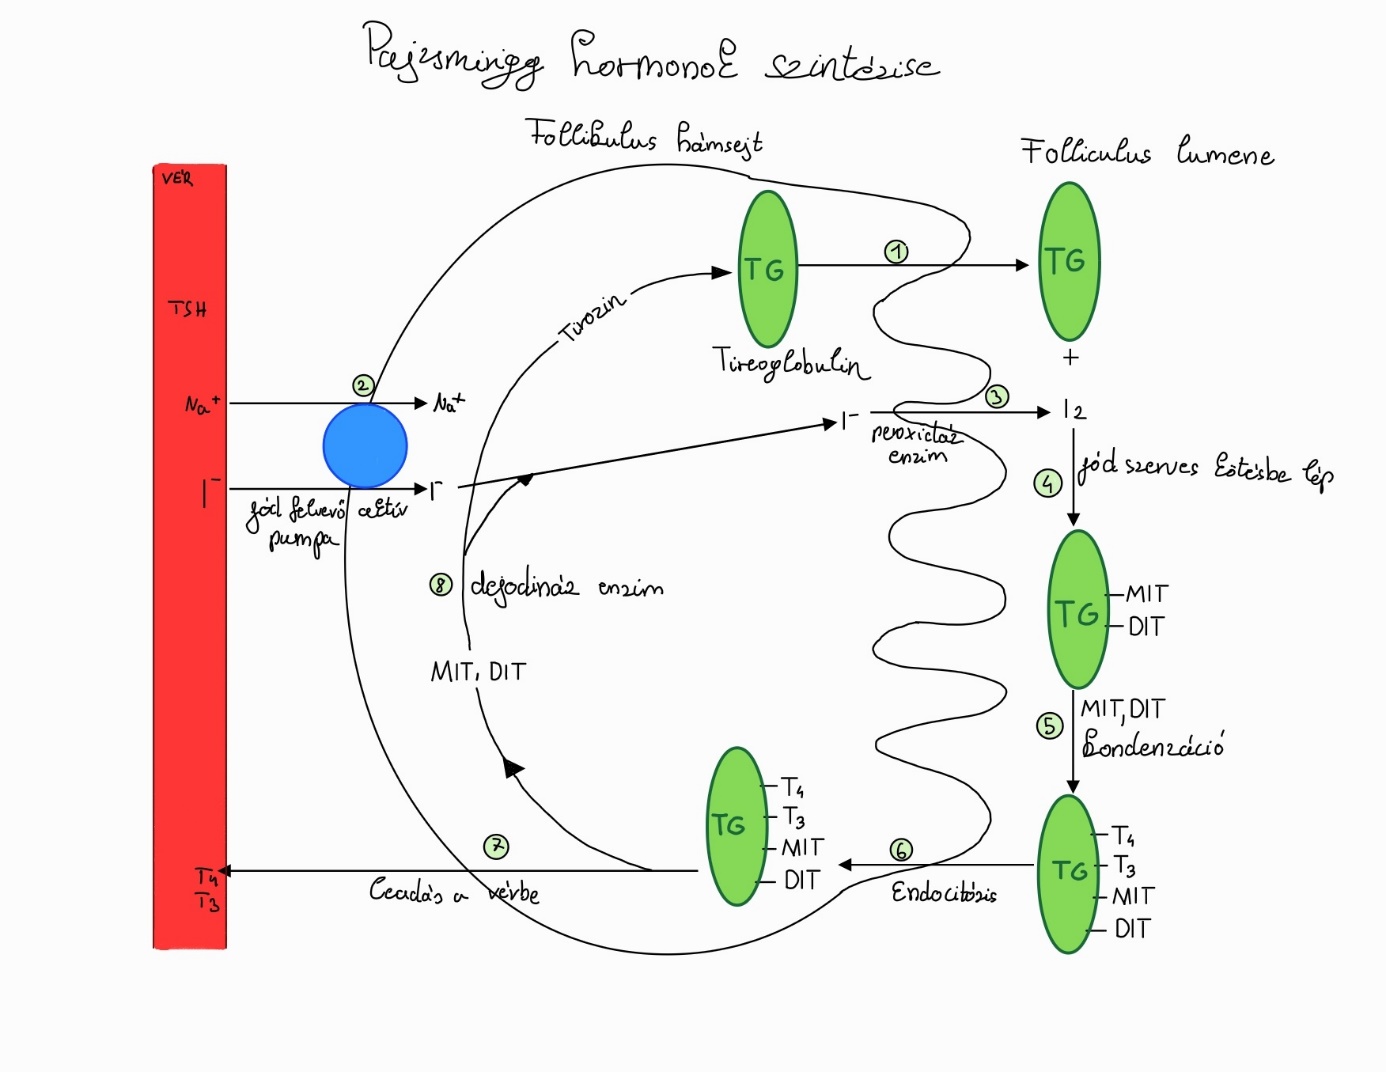 Pajzsmirigy hormonok szintézise
Follikulus hámsejt
Folliculus lumene
VÉR
TSH
TG
1
TG
Tirozin
Tireoglobulin
+
2
Na⁺
Na⁺
I⁻
I⁻
jód felvevő aktív
pumpa
I⁻
3
I2
peroxidáz
enzim
4
jód szerves kötésbe lép
8
dejodináz enzim
TG
MIT
DIT
MIT, DIT
5
MIT, DIT
kondenzáció
TG
T4
T3
MIT
DIT
6
Endocitózis
TG
T4
T3
MIT
DIT
7
Leadás a vérbe
T4
T3